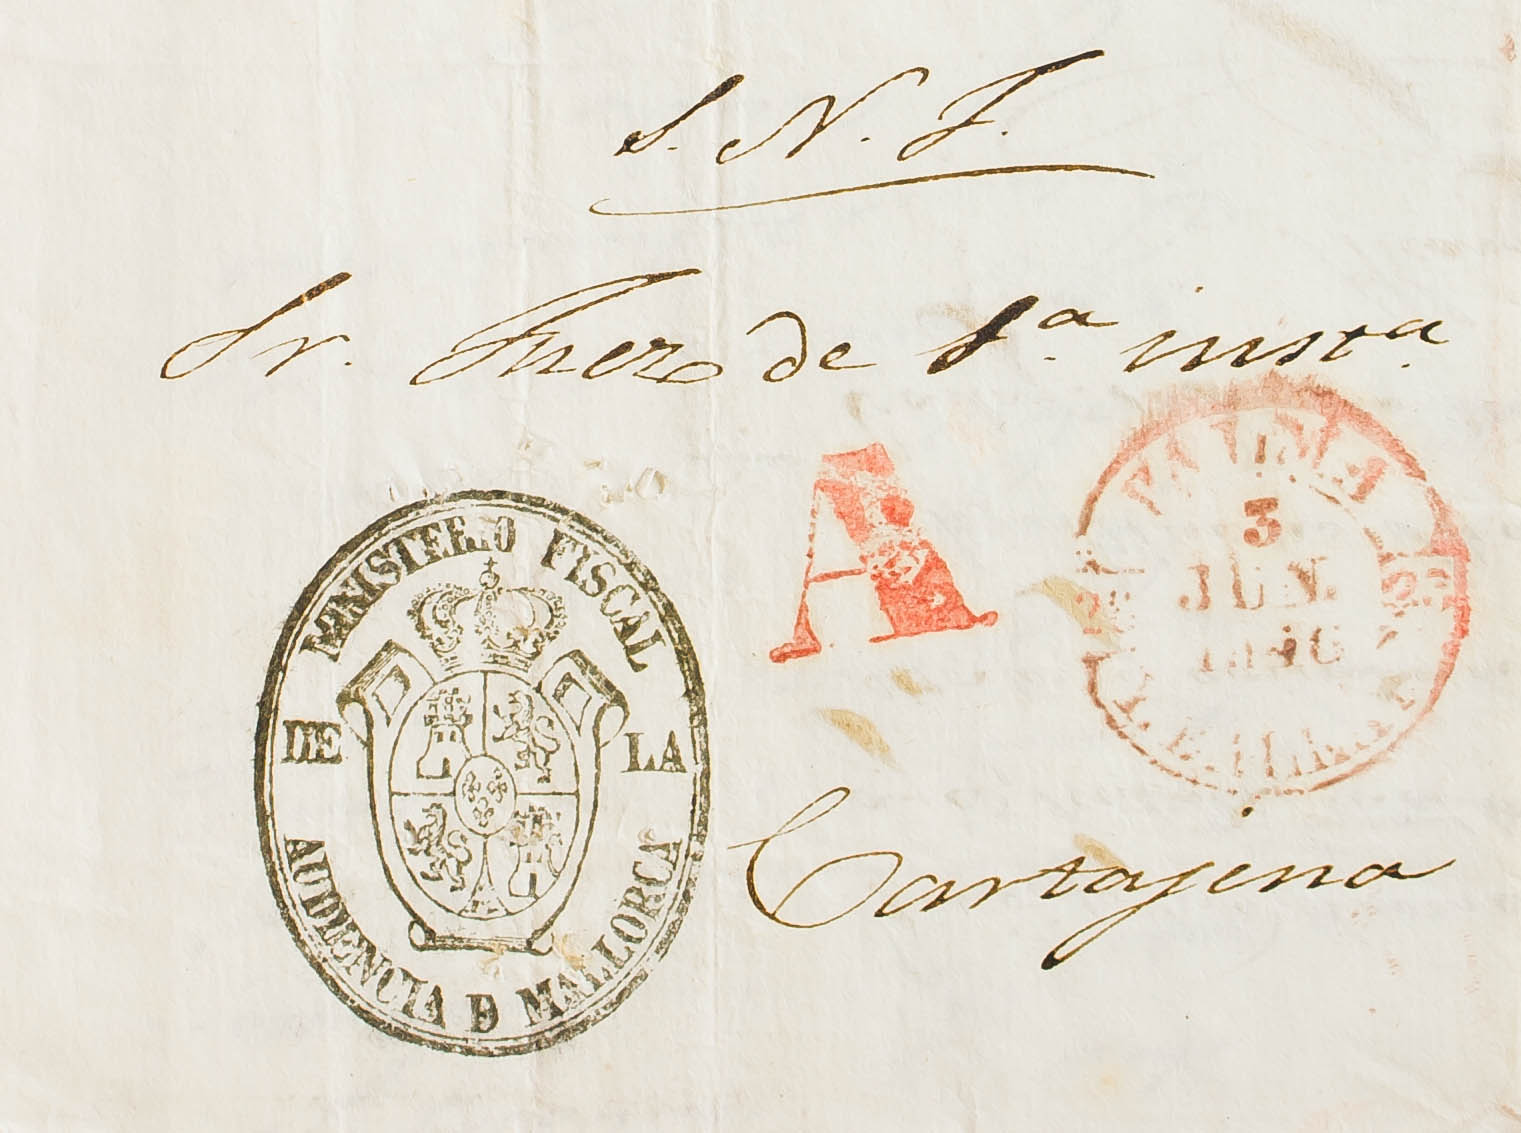 S. N. J.
Sr. Juez de 1.ª inst.ª
MINISTERIO FISCAL
DE LA
AUDIENCIA D MALLORCA
A
PALMA
3
JUN.
Cartajena